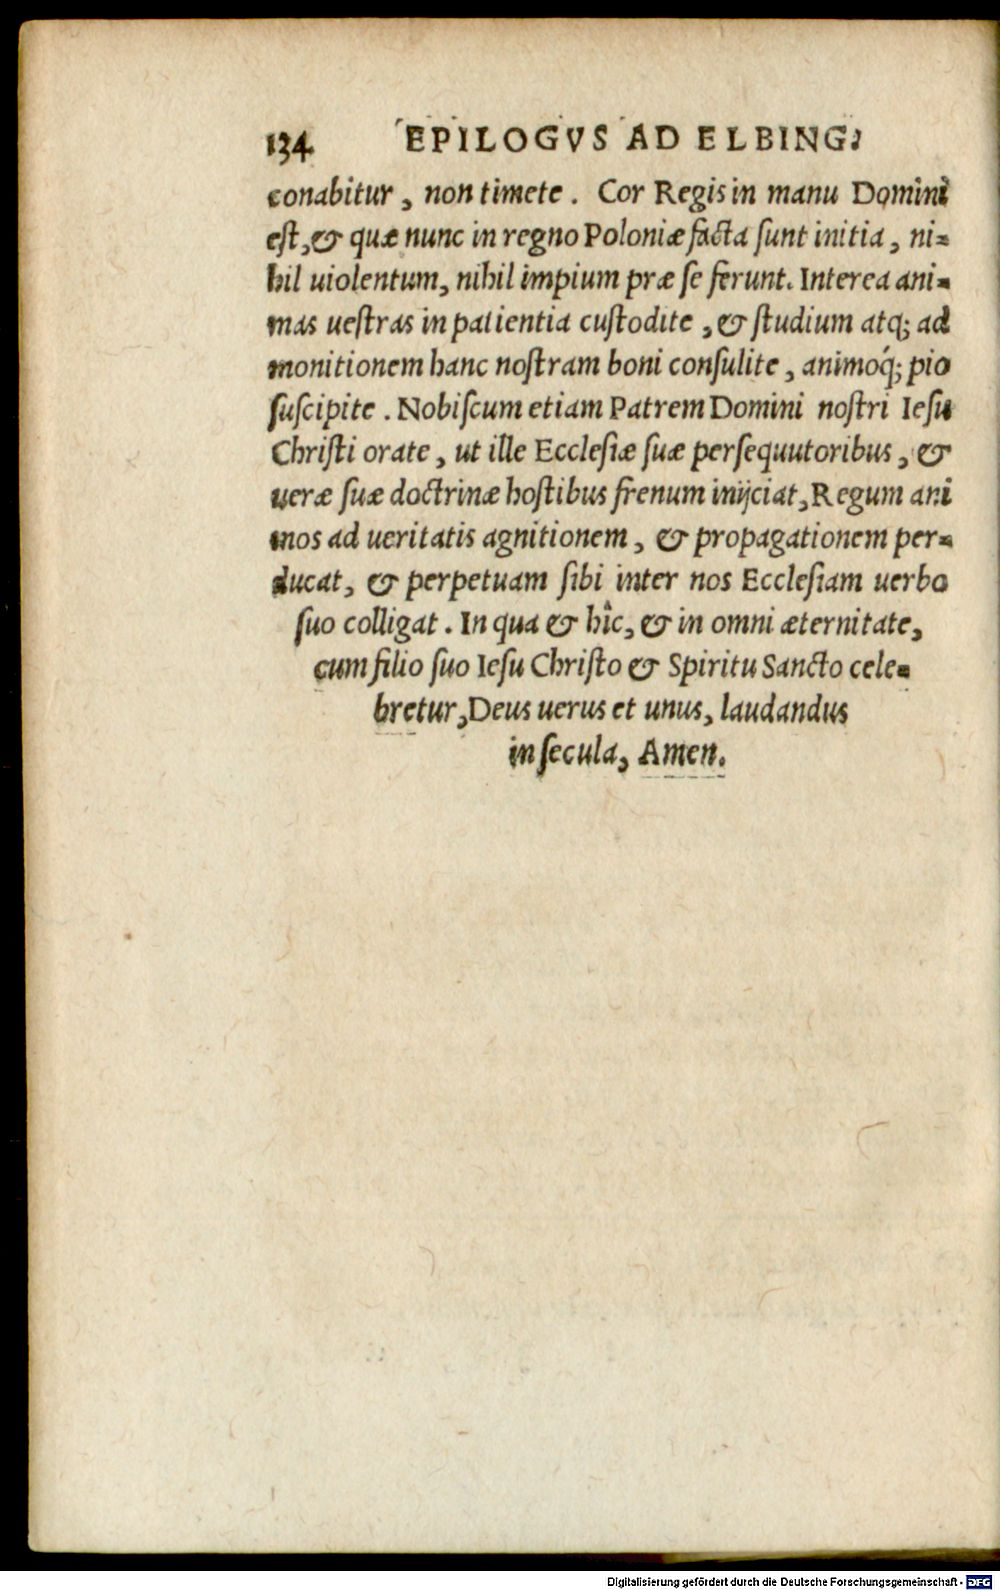 134 EPILOGVS AD ELBING.
conabitur, non timete. Cor Regis in manu Domini
eſt, & quæ nunc in regno Poloniæ facta ſunt initia, ni=
hil uiolentum, nihil impium præ ſe ferunt. Interea ani=
mas ueſtras in patientia cuſtodite, & ſtudium atq; ad
monitionem hanc noſtram boni conſulite, animoq́; pio
ſuſcipite. Nobiſcum etiam Patrem Domini noſtri Ieſu
Chriſti orate, ut ille Eccleſiæ ſuæ perſequutoribus, &
ueræ ſuæ doctrinæ hoſtibus frenum inijciat, Regum ani
mos ad ueritatis agnitionem, & propagationem per=
ducat, & perpetuam ſibi inter nos Eccleſiam uerbo
ſuo colligat. In qua & hîc, & in omni æternitate,
cum filio ſuo Ieſu Chriſto & Spiritu Sancto cele=
bretur, Deus uerus et unus, laudandus
in ſecula, Amen.
Digitalisierung gefördert durch die Deutsche Forschungsgemeinschaft - DFG